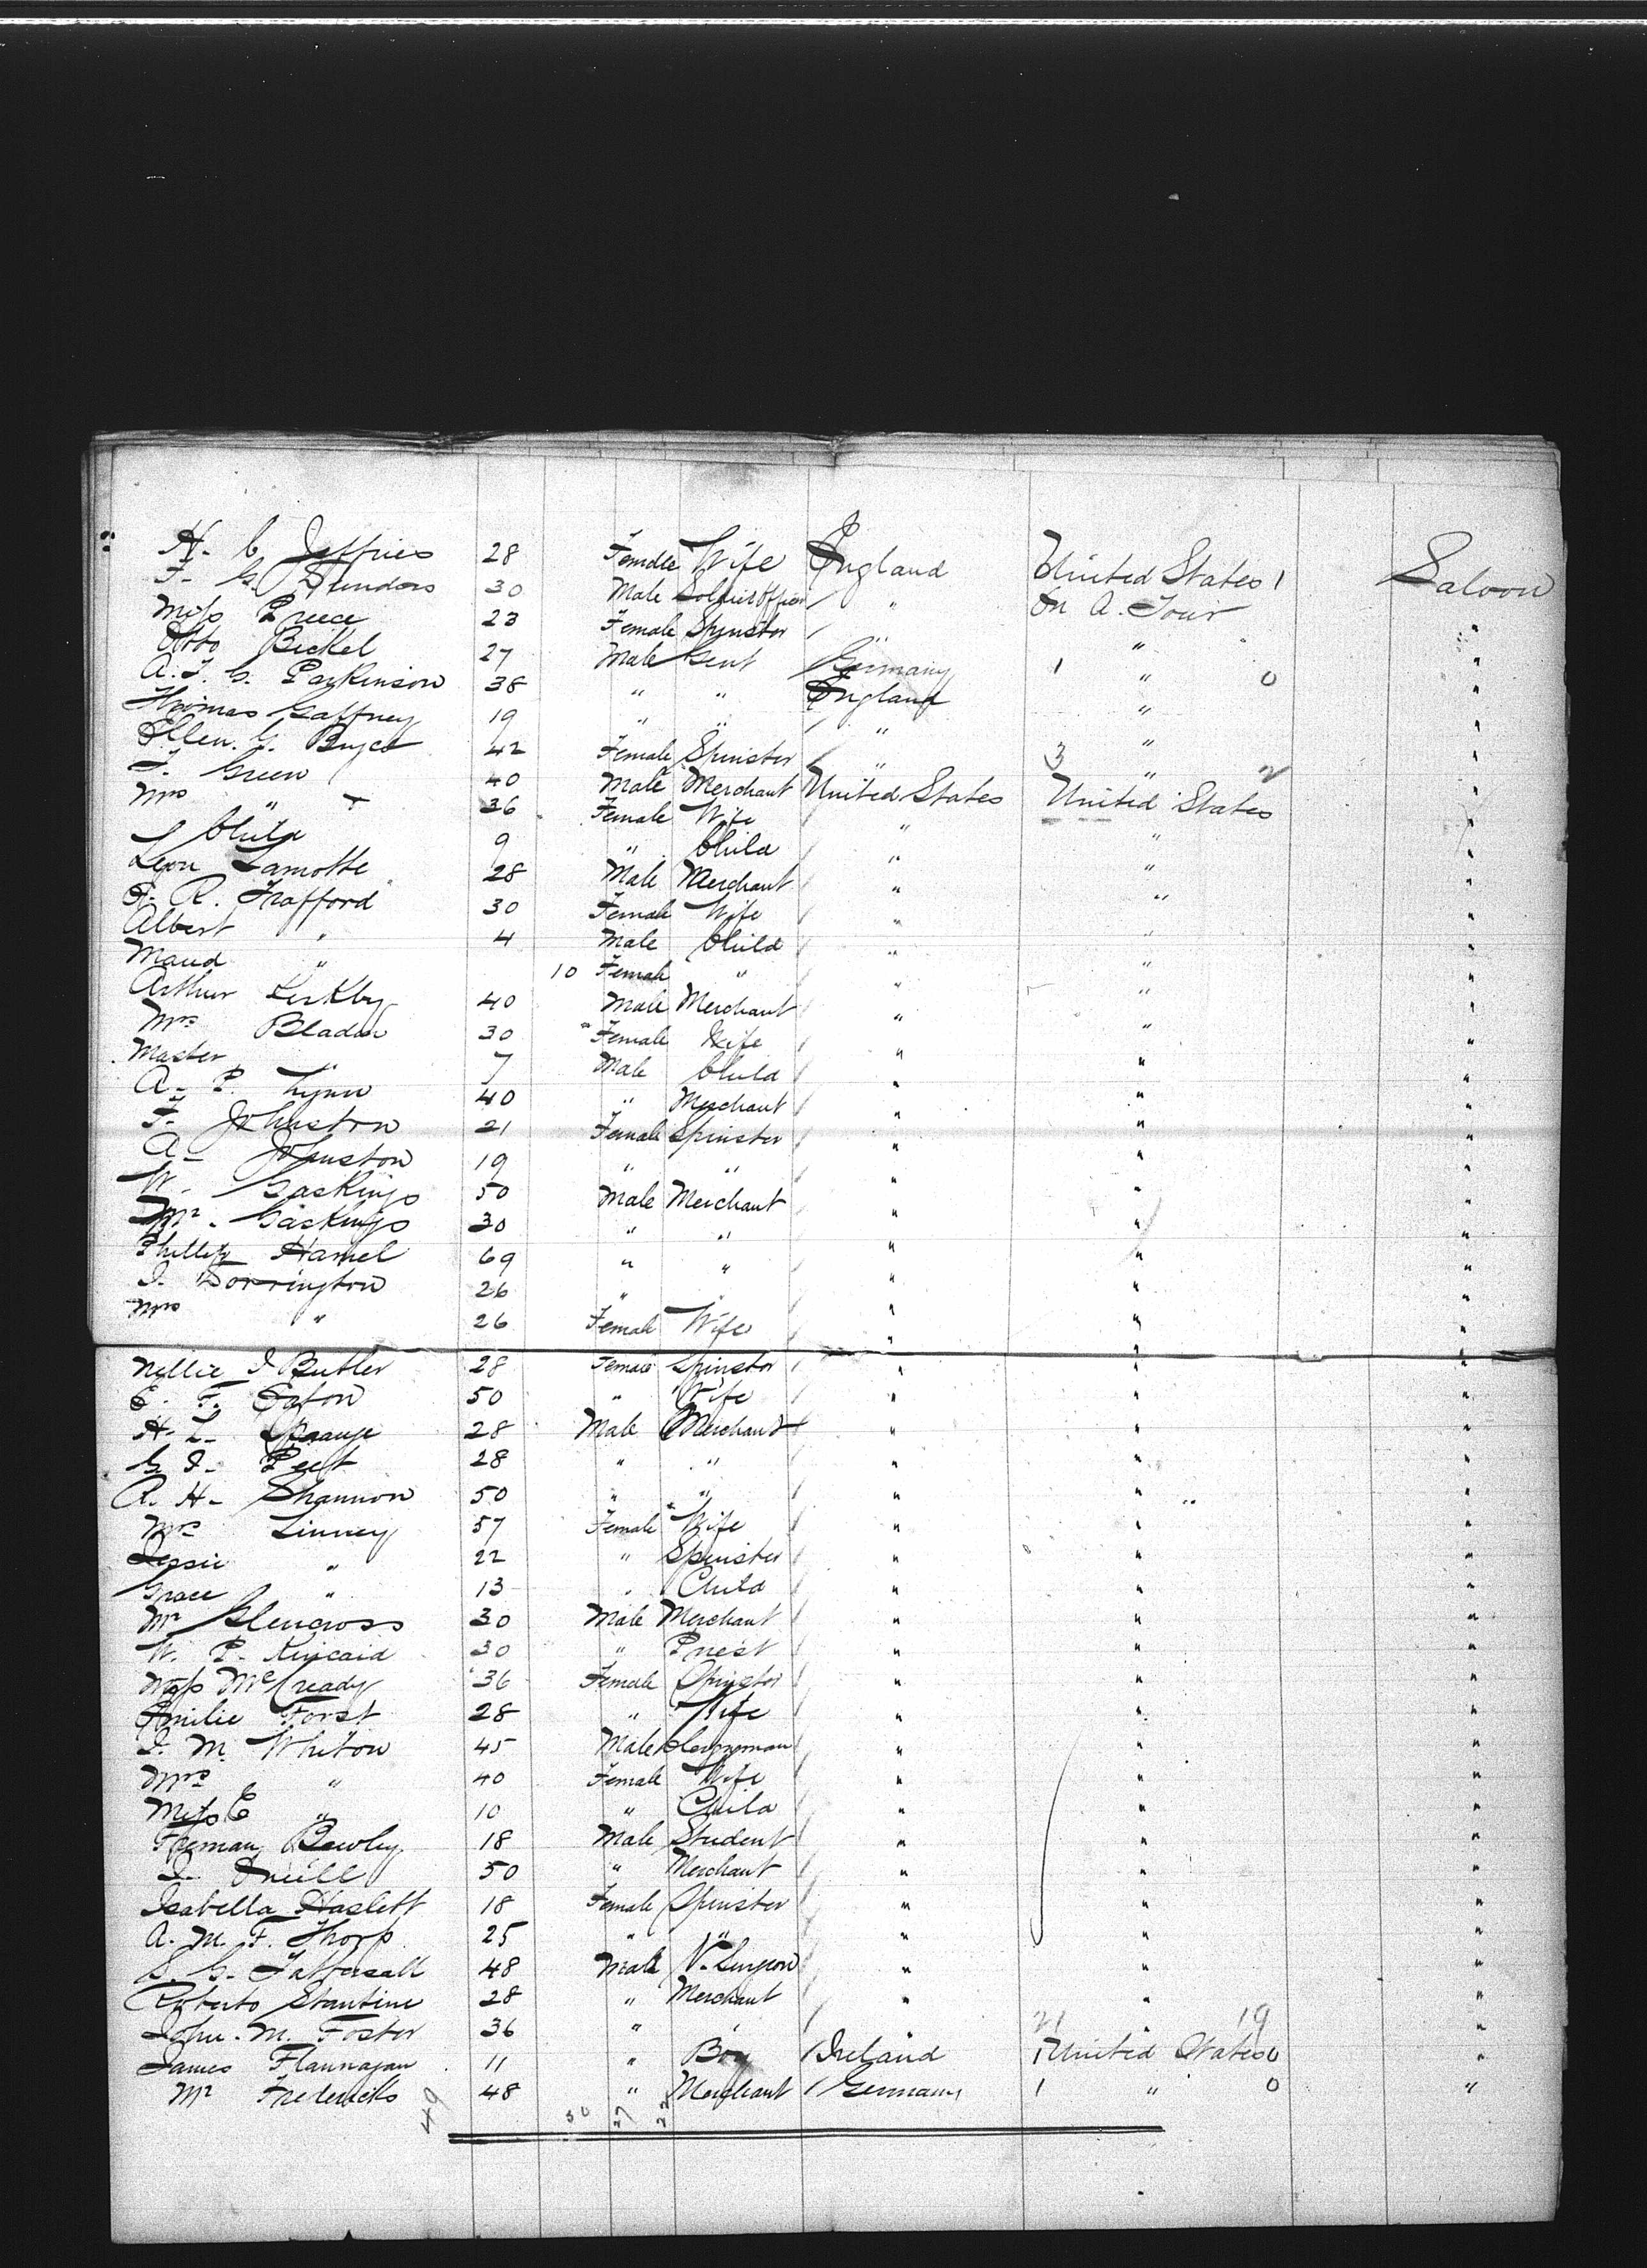 H. C. Jeffries 28 Female Wife England United States 1 Saloon
F. G. Slunders 30 Male Soldier Officer " On A. Tour "
Miss Preece 23 Female Spinster " " "
Otto Bickel 27 Male Gent Germany 1 " 0 "
A. T. G. Parkinson 38 " " England " "
Thomas Gaffney 19 " " " " "
Ellen. G. Bryce 42 Female Spinster " 3 " 2 "
T. Green 40 Male Merchant United States United States "
Mrs " 36 Female Wife " " "
Child 9 " Child " " "
Leon Lamotte 28 Male Merchant " " "
R. Trafford 30 Female Wife " " "
Albert " 4 Male Child " " "
Maud " 10 Female " " " "
Arthur Kirkby 40 Male Merchant " " "
Mrs Bladen 30 Female Wife " " "
Master " 7 Male Child " " "
A. P. Lynn 40 " Merchant " " "
F. Johnston 21 Female Spinster " " "
A. Johnston 19 " " " " "
W. Gaskings 50 Male Merchant " " "
Mr. Gaskings 30 " " " " "
Phillip Hamel 69 " " " " "
J. Dorrington 26 " " " " "
Mrs " 26 Female Wife " " "
Nellie J Butler 28 Female Spinster " " "
E. F. Eaton 50 " Wife " " "
H. L. 28 Male Merchant " " "
G. J. Peet 28 " " " " "
A. H. Shannon 50 " " " " "
Mrs Linney 57 Female Wife " " "
Jessie " 22 " Spinster " " "
Grace " 13 " Child " " "
Mr Glencross 30 Male Merchant " " "
W. P. Kincaid 30 " Priest " " "
Miss McCready 36 Female Spinster " " "
Emilie Forst 28 " Wife " " "
J. M. Whiton 45 Male Clergyman " " "
Mrs " 40 Female Wife " " "
Miss E " 10 " Child " " "
Freeman Bewley 18 Male Student " " "
J. Oneill 50 " Merchant " " "
Isabella Haslett 18 Female Spinster " " "
A. M. F. Thorp 25 " " " " "
S. G. Tattersall 48 Male V. Surgeon " " "
Roberto Stantine 28 " Merchant " " "
John. M. Foster 36 " " 21 " 19 "
James Flannagan 11 " Boy Ireland 1 United States 0 "
Mr Fredericks 48 " Merchant Germany 1 " 0 "
49 30 27 22